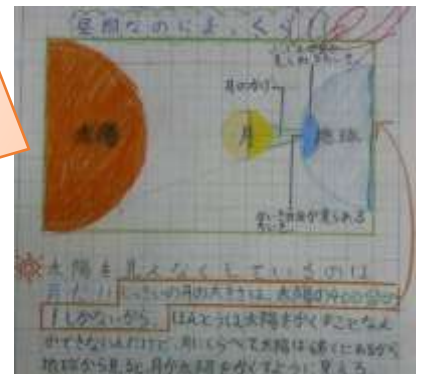 昼間なのに よ、くら
月のかげ
太陽
月
地球
かいき日食が見られる
太陽を見えなくしているのは
月だ!! じっさいの月の大きさは、太陽の400分の
1しかないから、ほんとうは太陽をかくすことなん
かできないんだけど、月にくらべて太陽は遠くにあるから
地球から見ると、月が太陽をかくすように見える